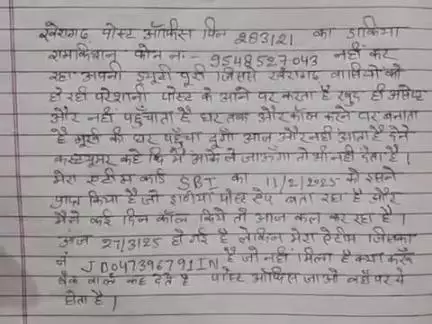 खेरागढ़ पोस्ट ऑफिस पिन 283121 का डाकिया
रामकिशन फोन नः- 9548527043 नहीं कर
रहा अपनी ड्यूटी पूरी जिससे खेरागढ़ वासियों को
हो रही परेशानी पोस्ट के आने पर करता है खुद ही
और नहीं पहुँचाता है घर तक और कॉल करने पर बनाता
है मूर्ख की घर पहुँचा दूंगा आज और नहीं आता है देने
कस्टूमर कहे कि मैं आके ले जाऊँगा तो भी नहीं देता है।
मेरा एटीम कार्ड SBI का 11/2/2025 को इसने
प्राप्त किया है जो इंडीया पोस्ट ऐप बता रहा है और
मैंने कई दिन कॉल किये तो आज कल कर रहा है।
आज 27/3/25 हो गई है लेकिन मेरा ऐटीम जिसका
नं JB047396791IN है जो नहीं मिला है क्या करूँ
बैंक वाले कह देते है पोस्ट ऑफिस जाओ वहाँ पर ये
होता है।